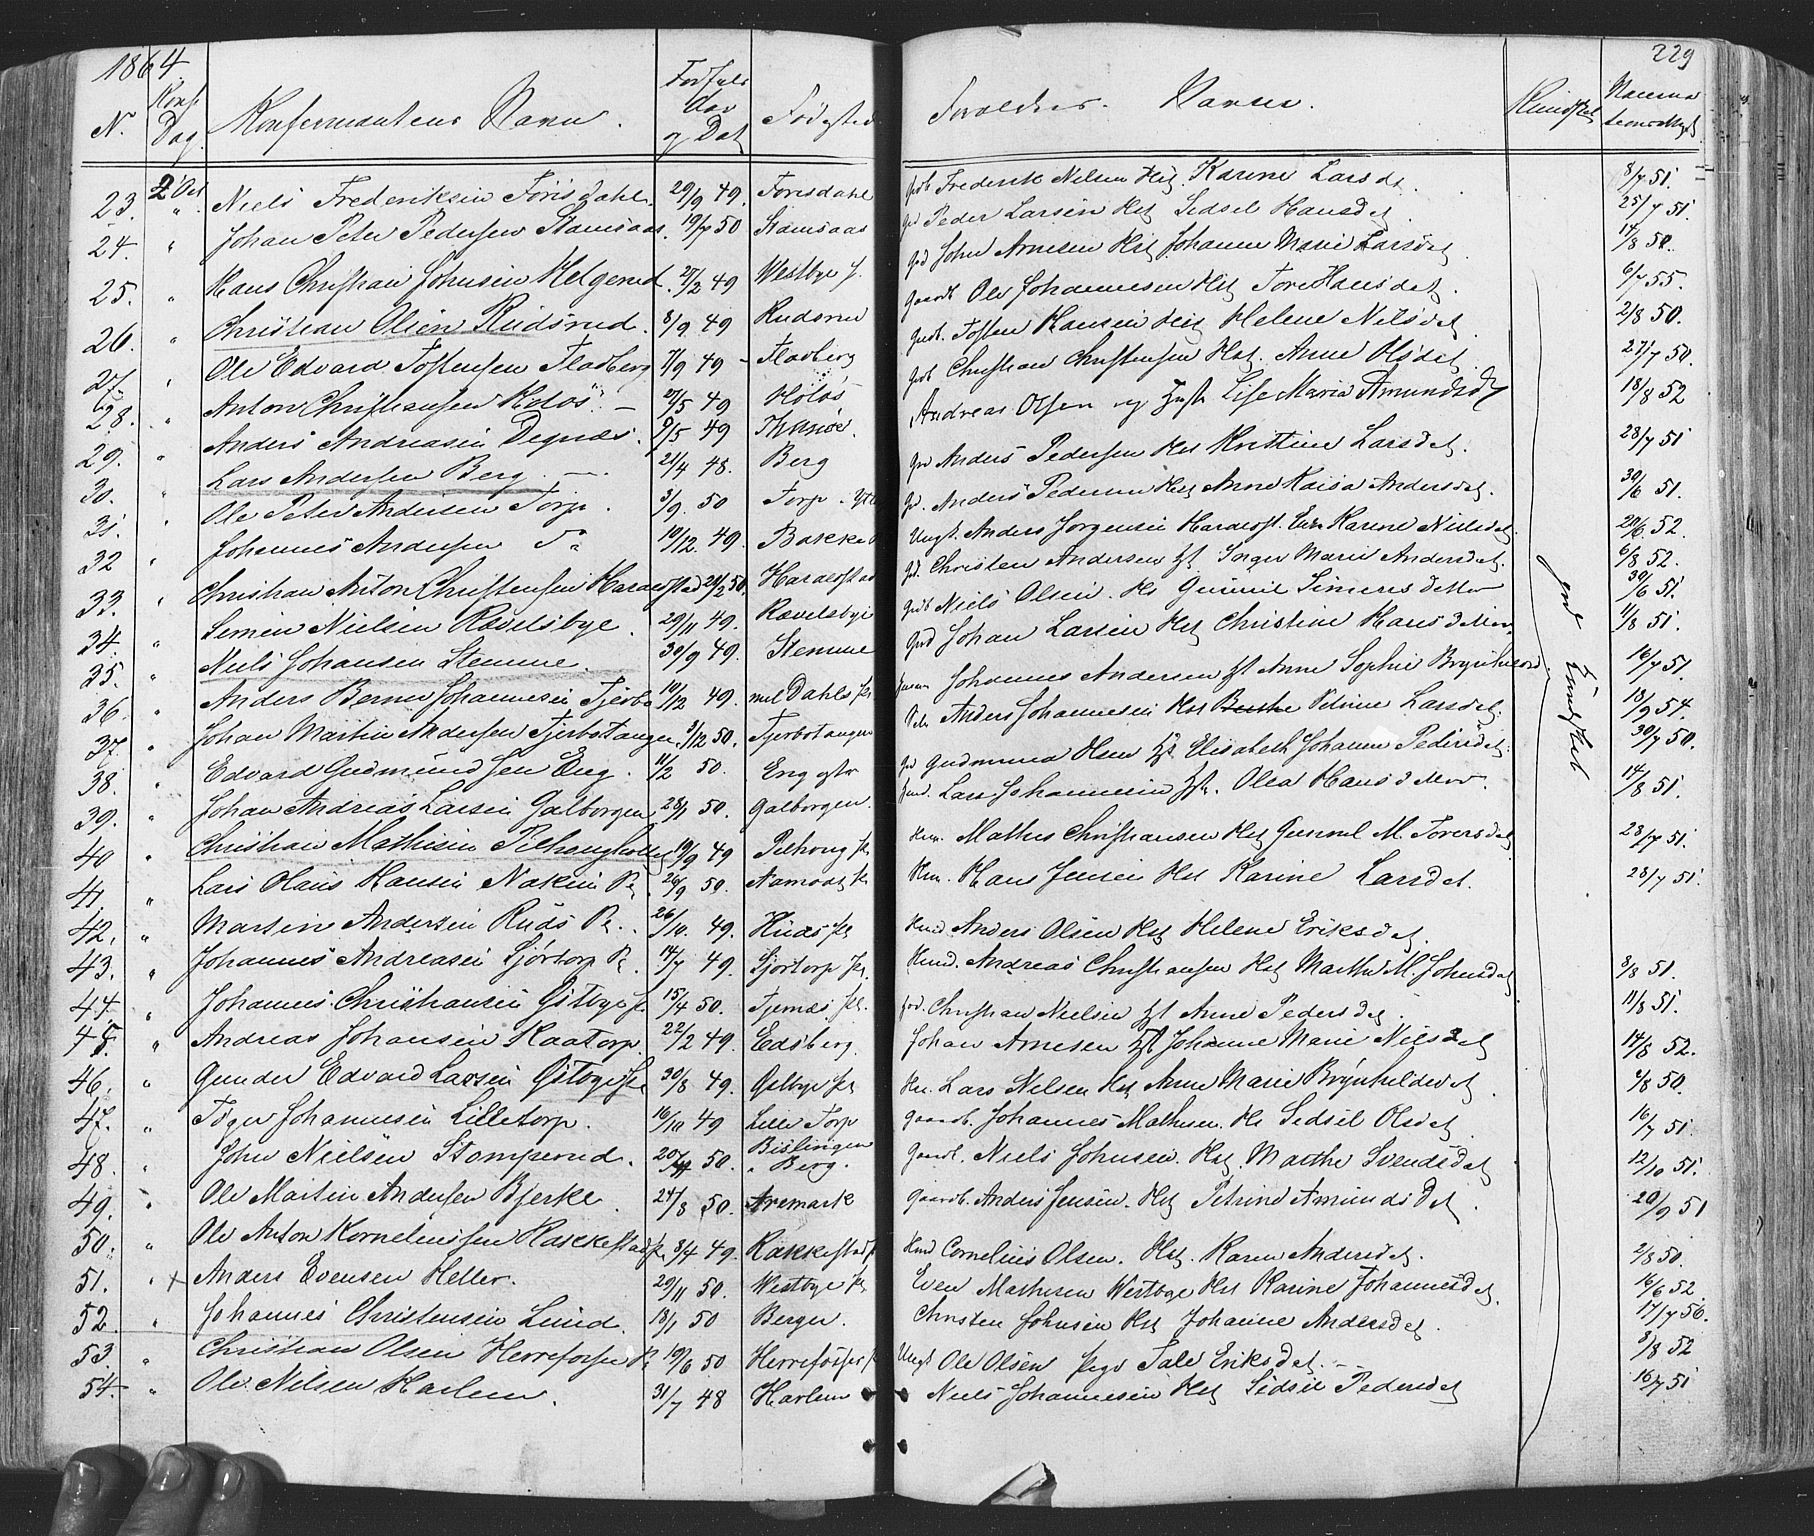 1864.
229
N. Konf. Dag. Konfirmantens Navn. Fødsels Aar og Dat Fødested Forældres Navne. Kundskab Vaccina
23. 2 Oct Niels Frederiksen Torisdahl. 29/9 49. Torisdahl Frederik Nilsen Hst. Karine Larsdt. 8/7 51.
24. " Johan Peter Pedersen Stamsaas. 19/7 50 Stamsaas Peder Larsen Hst Sedsel Hansdat. 25/7 51.
25. " Hans Christian Johnsen Helgerud. 27/2 49 Westbye John Arnesen Hst Johanne Marie Larsdat 14/8 50.
26. " Christian Olsen Rudsrud. 8/9 49 Rudsrud Gaardb Ole Johannesen Hst Tore Hansdat. 6/7 55.
27. " Ole Edvard Tostensen Fladberg 7/9 49 - Fladberg Gadb. Tosten Hansen Hst Helene Nilsdat 2/8 50.
28. " Anton Christiansen Holøs. - 27/5 49 Holøs Christian Christensen Hst. Anne Olsdat. 27/7 50.
29. " Anders Andreasen Degnæs. 9/5 49 Andreas Olsen og Hust Lise Maria Amundsd 18/8 52
30. " Lars Andersen Berg. - 21/4 48. Berg Anders Pedersen Hst Kristine Larsdat. 28/7 51
31. " Ole Peter Andersen Torp. 3/9 50 Torp. Anders Pedersen Hst Anne Kaisa Andersdat. 30/6 51.
32 Johannes Andersen do 10/12 49. Bakke Ungk. Anders Jorgensen Haralst. Karine Nilsdat 20/6 52.
33. " Christian Anton Christensen Haraldstad 21/2 50. Haraldstad Christen Andersen Hst Inger Marie Andersdat. 6/8 52.
34. " Semen Nielsen Ravelsbye. 29/11 49. Ravelsbye Niels Olsen. Hs Gunnil Simensdatter 30/6 51.
35. " Niels Johansen Stemme. 30/9 49. Stemme Johan Larsen Hst Christine Hansdatter 11/8 51.
36. " Anders Bernt Johannesen Tjerbo 10/12 49. Dahls Johannes Andersen Hst Anne Sophie Brynhild 16/7 51.
37. " Johan Martin Andersen Tjerbotangen. 3/12 50. Tjerbotangen Anders Johannesen Hst Petrine Larsdat. 18/9 54.
38. " Edvard Gudmundsen Eng. 11/2 50. Eng Gudmund Olsen Hst Elisabeth Johanne Pedersdat. 30/7 50.
39. " Johan Andreas Larsen Galborgen 28/1 50. Galborgen. Lars Johannesen Hst. Olea Hansdatter 14/8 51.
40 " Christian Mathisen 19/9 49 Mathis Christiansen Hst Gunnil M. Toresdat 28/7 51.
41 " Lars Hans Hansen 26/9 50. Hans Jensen Hst Karine Larsdat. 28/7 51.
42. " Martin Andersen Ruds Pl. 26/10. 49. Ruds pl Anders Olsen Hst Helene Eriksdat.
43. " Johannes Andreasen Sjørtorp Pl. 14/7 49. Sjørtorp pl. Andreas Christiansen Hst Marthe M. Johnsdat 8/8 51.
44. " Johannes Christiansen Østbye pl 15/4 50. Tjernæs pl. Christian Nielsen Hst Anne Pedersdat. 11/8 51.
45. " Andreas Johansen Kaatorp. 22/2 49. Edsberg. Johan Arnesen Hst Johanne Marie Nielsdat 14/8 52.
46. " Gunder Edvard Larsen Østbye pl 30/8 49. Østbye pl Lars Nilsen Hst Anne Marie Brynhildsdat. /8 50.
47. " Tøger Johannesen Lilletorp. 16/10 49 Lille Torp Gaardb. Johannes Mathisen. Hs Sedsel Olsdat 16/7 51.
48. " John Nielsen Stomperud. 20/ 50. Bislingen Berg. Gaardb. Niels Johnsen. Hst. Marthe Svendsdat 12/10 51.
49. " Ole Martin Andersen Bjerke. 24/8 50. Aremark Gaardb. Anders Jensen. Hst Petrine Amundsdat. 20/9 51
50. " Ole Anton Kornelinssen Rakkestad pl 3/4 49. Rakkestad pl Cornelius Olsen. Hst. Karen Andersdat. 2/8 50.
51. " x Anders Evensen Heller. 29/11 50. Westbye pl Even Mathisen Westbye Hst Karine Johannesdat. 16/6 52.
52. " Johannes Christensen Lund. 18/1 50 Berger. Christen Johnsen Hst Johanne Andersdat. 17/7 56.
53. " Christian Olsen Herrefosse Pl 19/6 50 Herrefosser pl Ungk Ole Olsen pige Tale Eriksdat. - 8/8 52
54 " Ole Nilsen Harlem. 31/7 48 Harlem Niels Johannesen Hst Sidsil Pedersdat 16/7 51
god Kundskab